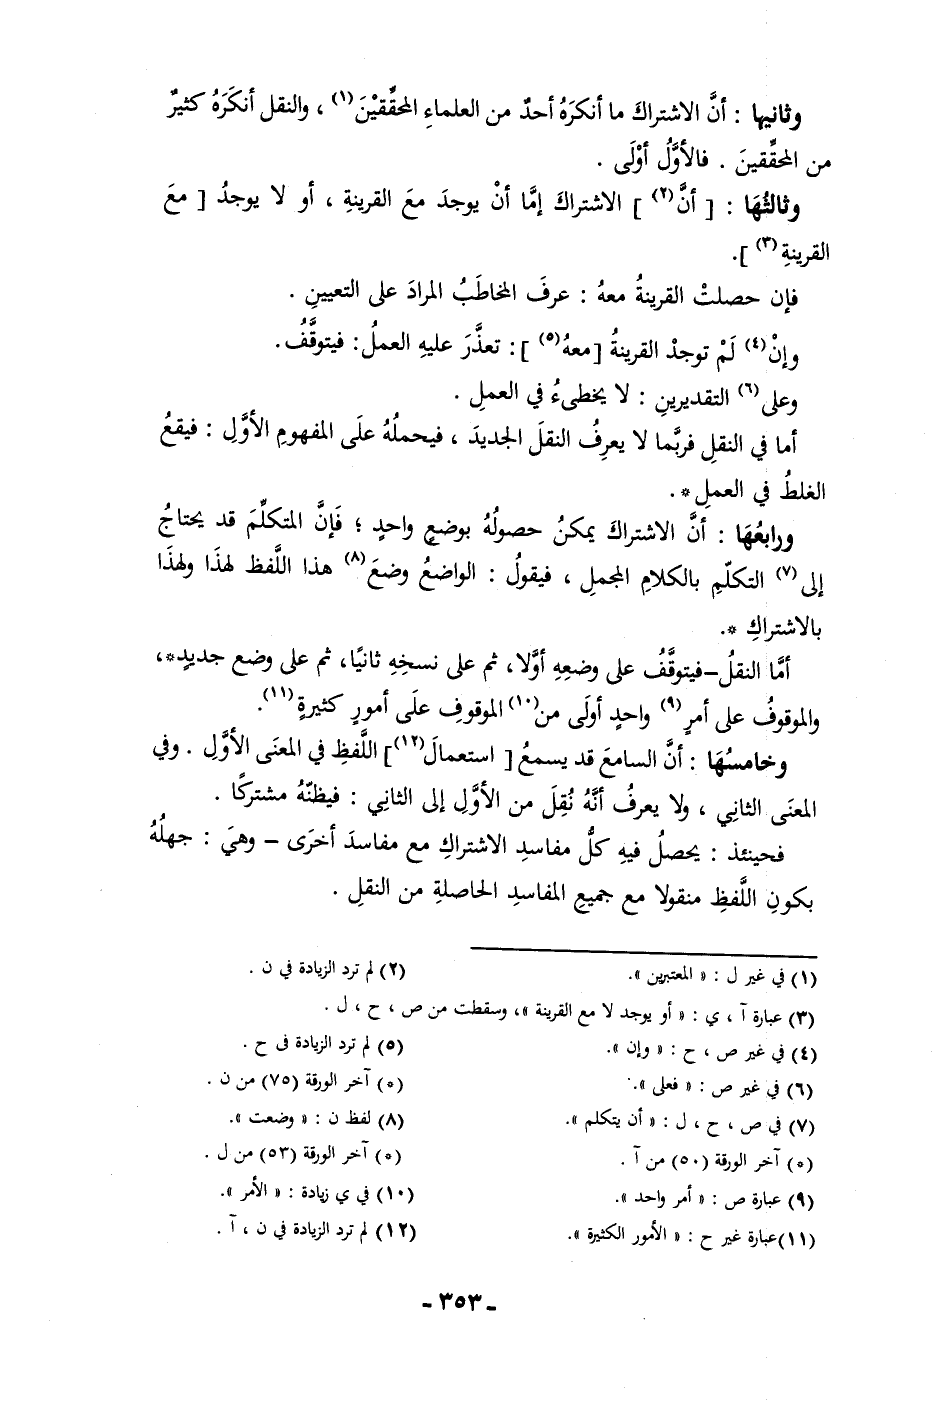 وثانيها : أنَّ الاشتراكَ ما أنكرَهُ أحدٌ من العلماءِ المحقِّقيْنَ (١) ، والنقل أنكَرَهُ كثيرٌ
من المحقِّقينَ . فالأوَّلُ أوْلَى .
وثالثُهَا : [ أنَّ (٢) ] الاشتراكَ إمَّا أنْ يوجدَ معَ القرينةِ ، أو لا يوجدُ [ معَ
القرينةِ (٣) ].
فإن حصلتْ القرينةُ معهُ : عرفَ المخاطَبُ المرادَ على التعيينِ .
وإنْ (٤) لَمْ توجدْ القرينةُ [معهُ (٥) ]: تعذَّرَ عليهِ العملُ: فيتوقَّفُ.
وعلى (٦) التقديرينِ : لا يخطىءُ في العملِ .
أما في النقلِ فربَّما لا يعرِفُ النقلَ الجديدَ ، فيحملُهُ علَى المفهومِ الأوَّلِ : فيقعُ
الغلطُ في العملِ*.
ورابعُهَا : أنَّ الاشتراكَ يمكنُ حصولُهُ بوضعٍ واحدٍ ؛ فَإنَّ المتكلِّمَ قد يحتاجُ
إلى (٧) التكلّمِ بالكلامِ المجملِ ، فيقولُ : الواضعُ وضعَ (٨) هذا اللَّفظ لهذَا ولهذَا
بالاشتراكِ *.
أمَّا النقلُ–فيتوقَّفُ على وضعِهِ أوَّلا، ثم على نسخِهِ ثانيًا، ثم على وضع جديدٍ*،
والموقوفُ على أمرٍ (٩) واحدٍ أولَى من (١٠) الموقوفِ علَى أمورٍ كثيرةٍ (١١).
وخامسُهَا : أنَّ السامعَ قد يسمعُ [ استعمالَ (١٢) ] اللَّفظِ في المعنَى الأوَّلِ . وفي
المعنَى الثانِي ، ولا يعرفُ أنَّهُ نُقِلَ من الأوَّلِ إلى الثانِي : فيظنّهُ مشتركًا .
فحينئذ : يحصلُ فيهِ كلُّ مفاسدِ الاشتراكِ مع مفاسدَ أخرَى – وهيَ : جهلُهُ
بكونِ اللَّفظِ منقولا مع جميعِ المفاسدِ الحاصلةِ من النقلِ .
(١) في غير ل : « المعتبرين ». (٢) لم ترد الزيادة في ن .
(٣) عبارة آ ، ي : « أو يوجد لا مع القرينة »، وسقطت من ص ، ح ، ل .
(٤) في غير ص ، ح : « وإن ». (٥) لم ترد الزيادة فى ح .
(٦) في غير ص : « فعلى ». (٥) آخر الورقة (٧٥) من ن .
(٧) في ص ، ح ، ل : « أن يتكلم ». (٨) لفظ ن : « وضعت ».
(٥) آخر الورقة (٥٠) من آ . (٥) آخر الورقة (٥٣) من ل .
(٩) عبارة ص : « أمر واحد ». (١٠) في ي زيادة : « الأمر ».
(١١)عبارة غير ح : « الأمور الكثيرة ». (١٢) لم ترد الزيادة في ن ، آ .
- ٣٥٣ -